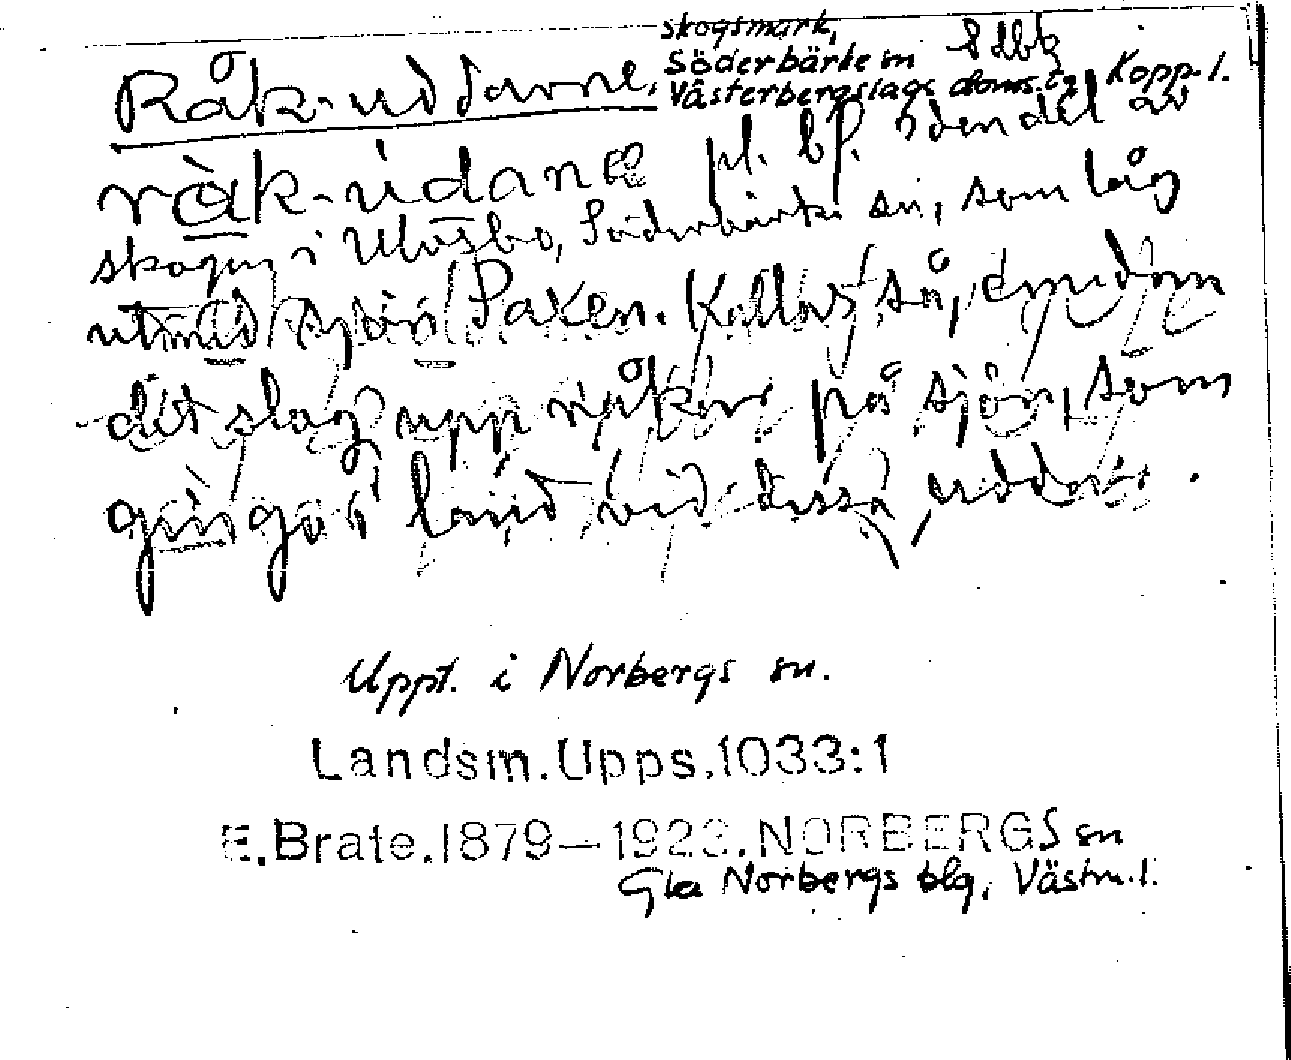 skogsmark,
Råk-uddarne, Söderbärke sn Kopp. l.
Västerbergslags doms.
råk-udana pl. bf. i den del av
skogen i Ulvsbo, Söderbärke sn, som låg
utmed sjön Saxen. Kallas så, emedan
det slog upp råkor på sjön, som
gingo i land vid dessa uddar.
Uppt. i Norbergs sn.
Landsm. Upps. 1033:1
E. Brate. 1879–1923. NORBERGS sn
Gla Norbergs blg, Västm. l.